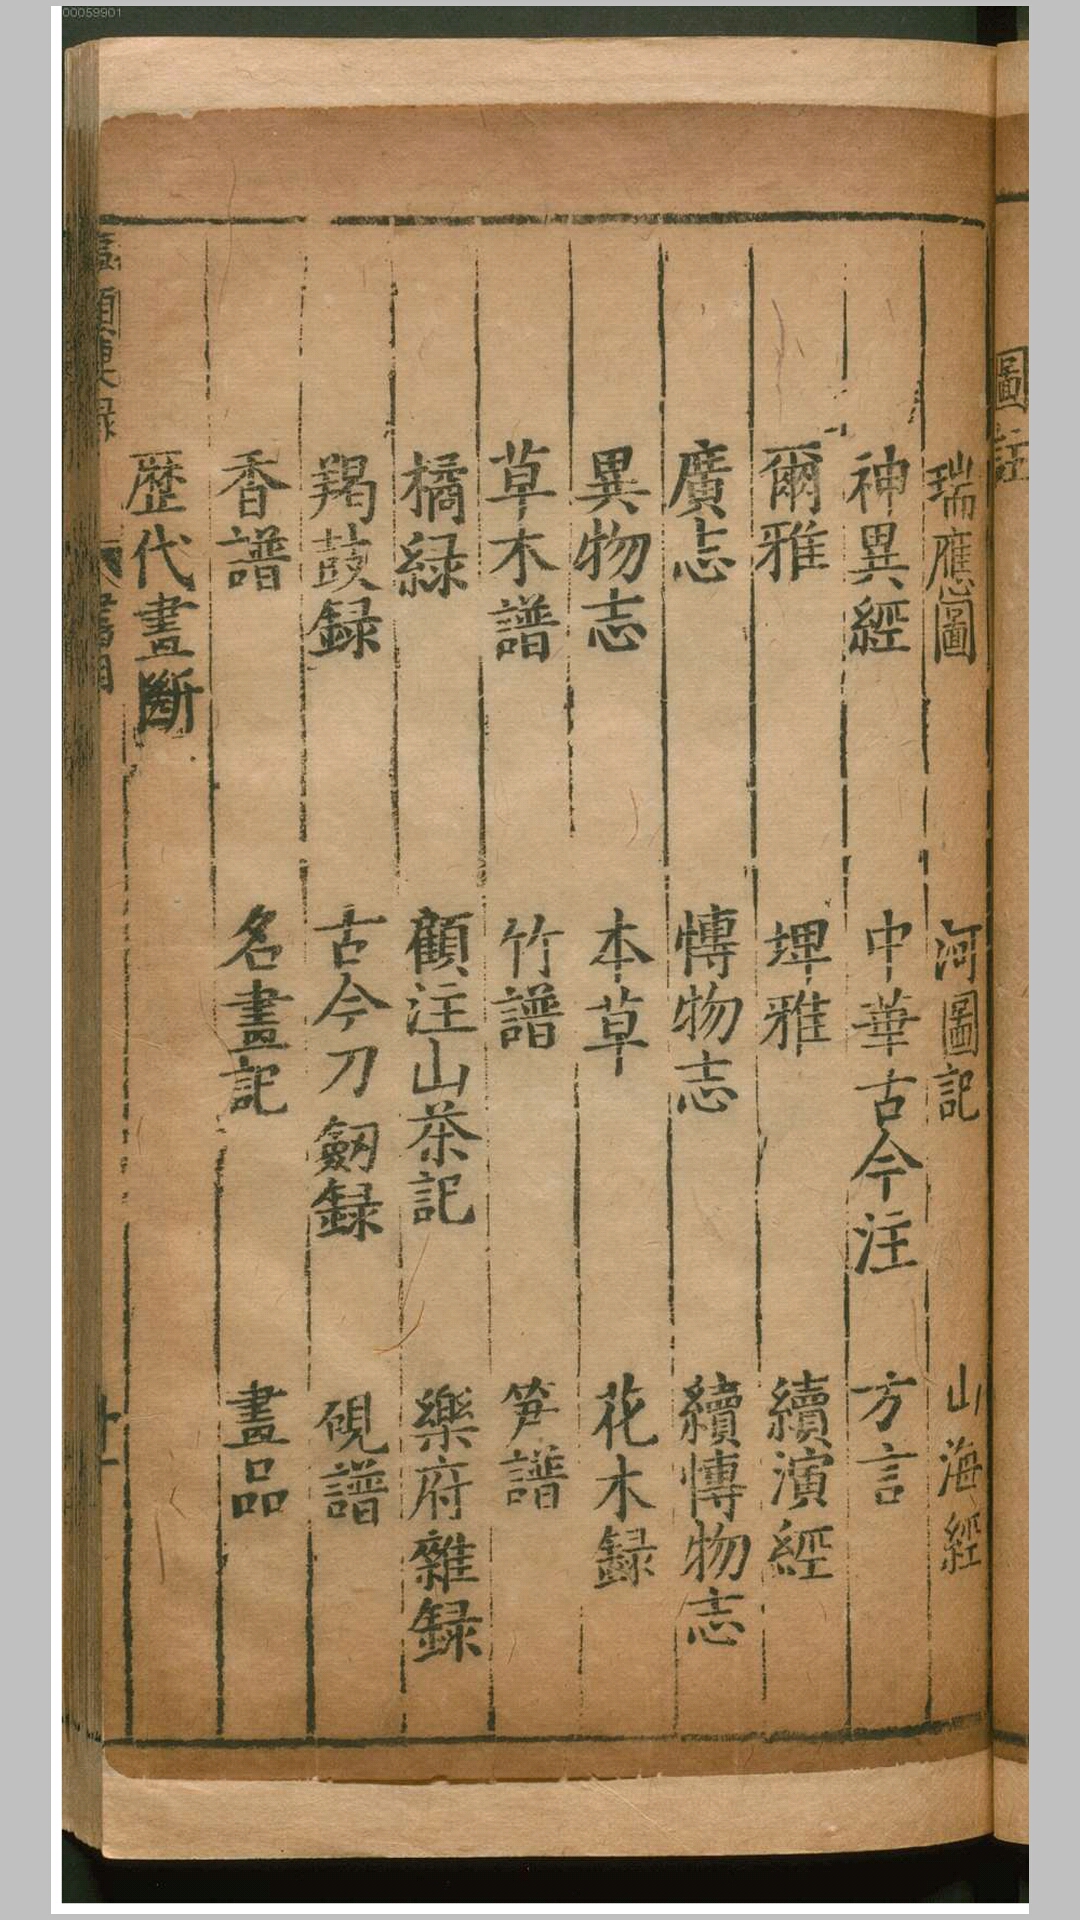 00059901
瑞應圖 河圖記 山海經
神異經 中華古今注 方言
爾雅 埤雅 續演經
廣志 博物志 續博物志
異物志 本草 花木録
草木譜 竹譜 笋譜
橘緑 顧注山茶記 樂府雜録
羯鼓録 古今刀劔録 硯譜
香譜 名畫記 畫品
歴代畫斷